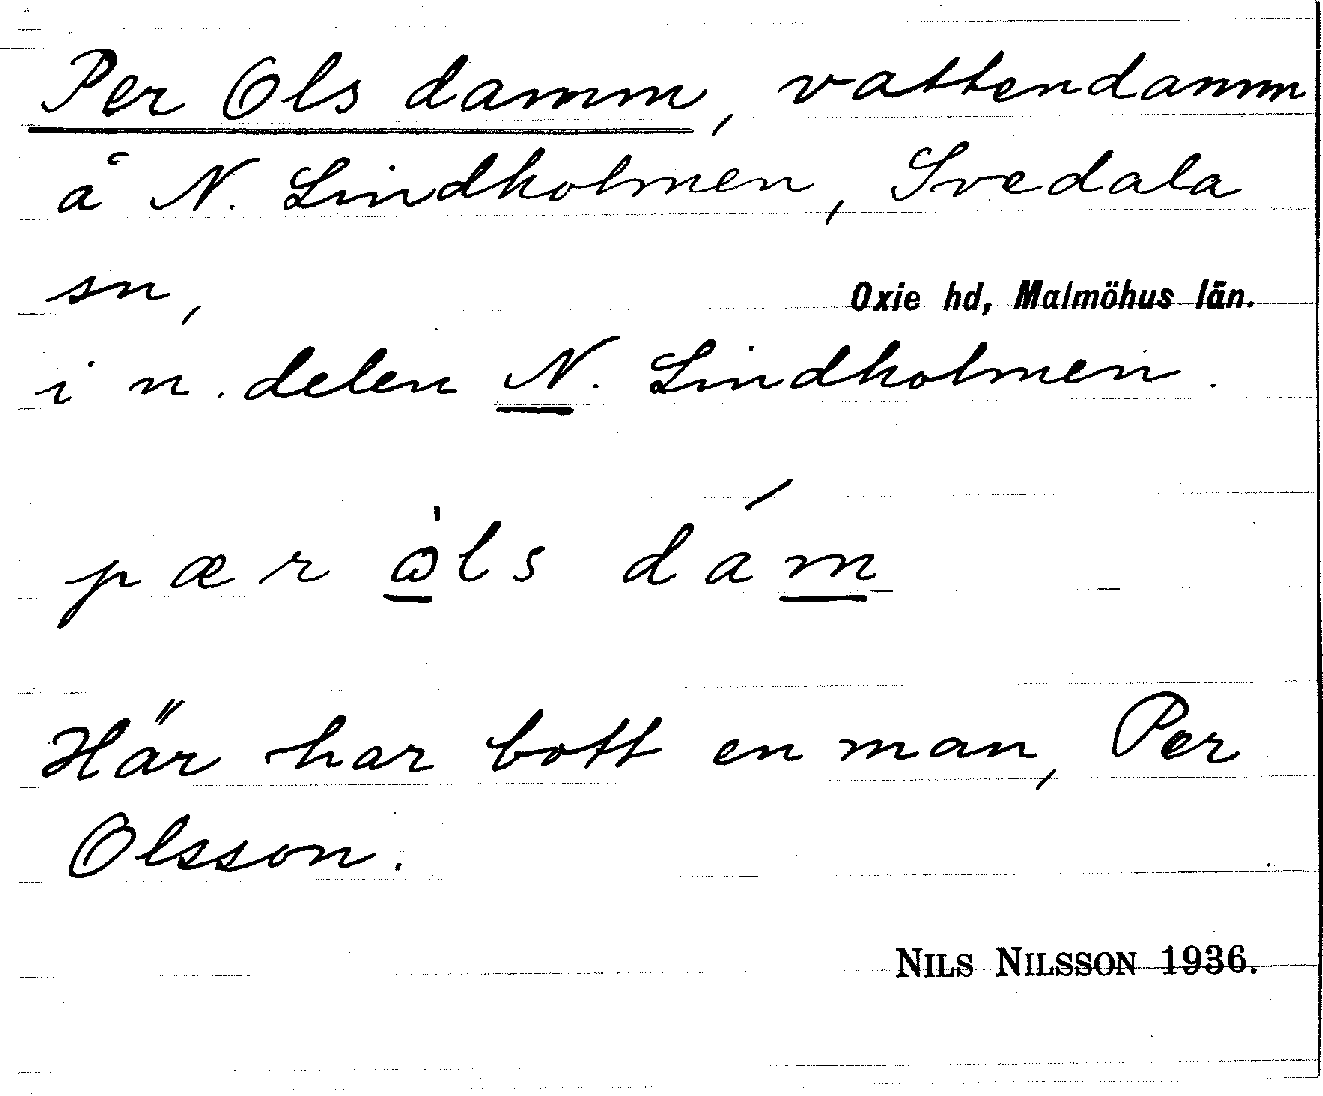 Per Ols damm, vattendamm
å N. Lindholmen, Svedala
sn, Oxie hd, Malmöhus län.
i n. delen N. Lindholmen.
pær ὼls dám
Här har bott en man, Per
Olsson.
NILS NILSSON 1936.